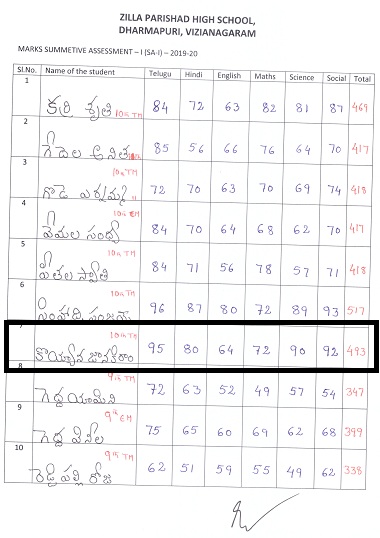 ZILLA PARISHAD HIGH SCHOOL,
DHARMAPURI, VIZIANAGARAM
MARKS SUMMETIVE ASSESSMENT – I (SA-I) – 2019-20
Sl.No. Name of the student Telugu Hindi English Maths Science Social Total
1 కర్రి కృతి 10th TM 84 72 63 82 81 87 469
2 గేదెల అనిత 85 56 66 76 64 70 417
3 10th TM గొడె ఎర్రమ్మ 72 70 63 70 69 74 418
4 10th EM వేమల సంధ్య 84 70 64 68 62 70 417
5 10th TM పీతల స్వాతి 84 71 56 78 57 71 418
6 10th TM సింహాద్రి 96 87 80 72 89 93 517
7 10th TM కొయ్యాన జానకిరాం 95 80 64 72 90 92 493
8 9th TM గెద్ద యామిని 72 63 52 49 57 54 347
9 9th EM గెద్ద వెన్నెల 75 65 60 69 62 68 399
10 9th TM రెడ్డి పల్లి రోజా 62 51 59 55 49 62 338